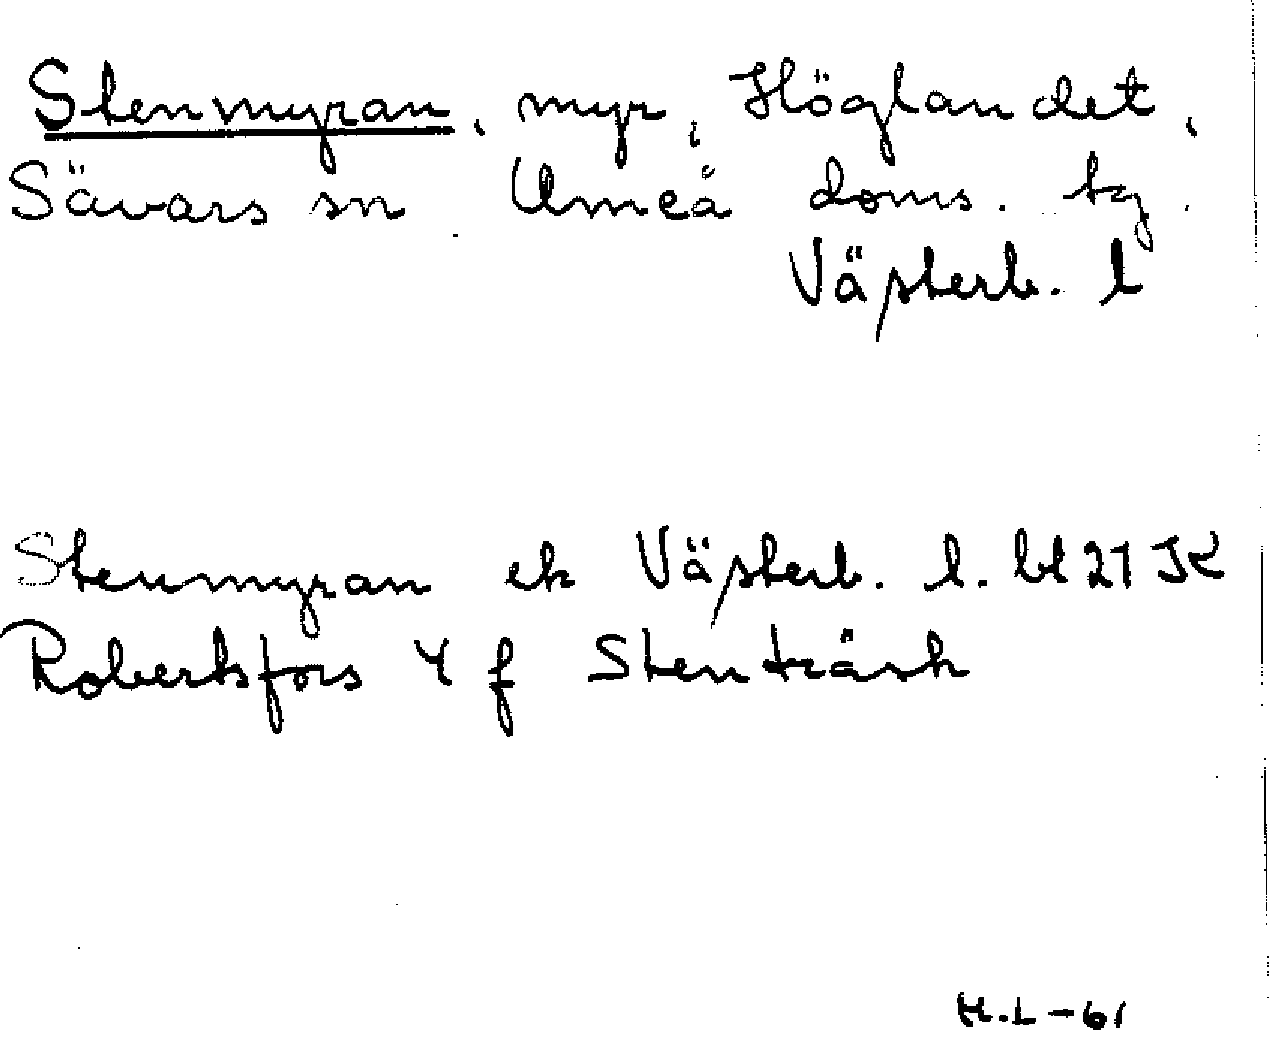 Stenmyran, myr, Höglandet,
Sävars sn Umeå doms. tg.
Västerb. l
Stenmyran ek Västerb. l. bl 21 JK
Robertsfors 4 f Stenträsk
H.L-61